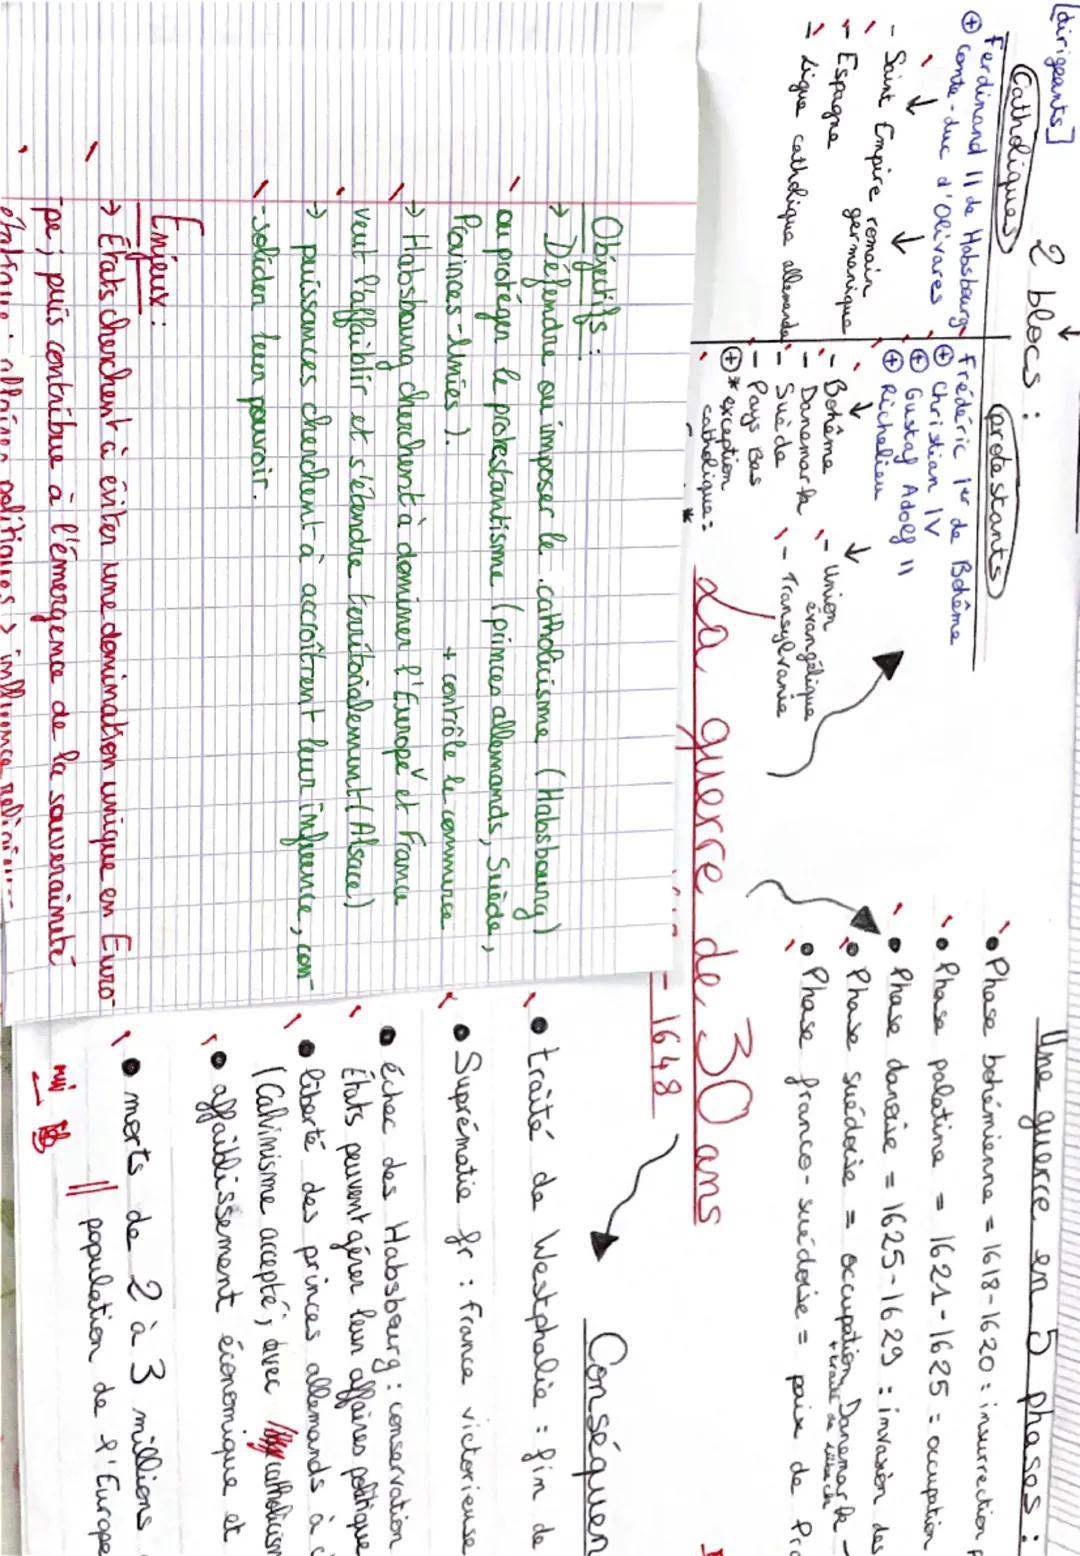 [dirigeants]
2 blocs :
Catholiques
Ferdinand II de Habsbourg
⊕ comte-duc d'Olivares
- Saint Empire romain
germanique
- Espagne
- Ligue catholique allemande
protestants
Frédéric 1er de Bohême
⊕ Christian IV
⊕ Gustaf Adolf II
⊕ Richelieu
- Bohême
- Danemark
- Suède
- Pays Bas
⊕ * exception
catholique :
*
- Union
évangélique
- Transylvanie
Une guerre en 5 phases :
• Phase bohémienne = 1618-1620 : insurrection
• Phase palatine = 1621-1625 = occupation
• Phase danoise = 1625-1629 : invasion des
• Phase suédoise = occupation Danemark -
+ traité de
• Phase franco-suédoise = paix de
La guerre de 30 ans
- 1648
Objectifs :
→ Défendre ou imposer le catholicisme (Habsbourg)
ou protéger le protestantisme (princes allemands, Suède,
Provinces-Unies). + contrôle le commerce
→ Habsbourg cherchent à dominer l'Europe et France
veut l'affaiblir et s'étendre territorialement (Alsace)
→ puissances cherchent à accroîtrent leur influence, con-
-solider leur pouvoir.
Enjeux :
→ États cherchent à éviter une domination unique en Euro-
-pe ; puis contribue à l'émergence de la souveraineté
politiques > influence
Conséquen
• traité de Westphalie = fin de
• Suprématie fr : France victorieuse
• échec des Habsbourg : conservation
États peuvent gérer leur affaires politique
• liberté des princes allemands à
(Calvinisme accepté, avec catholicism
• affaiblissement économique et
• morts de 2 à 3 millions
population de l'Europe